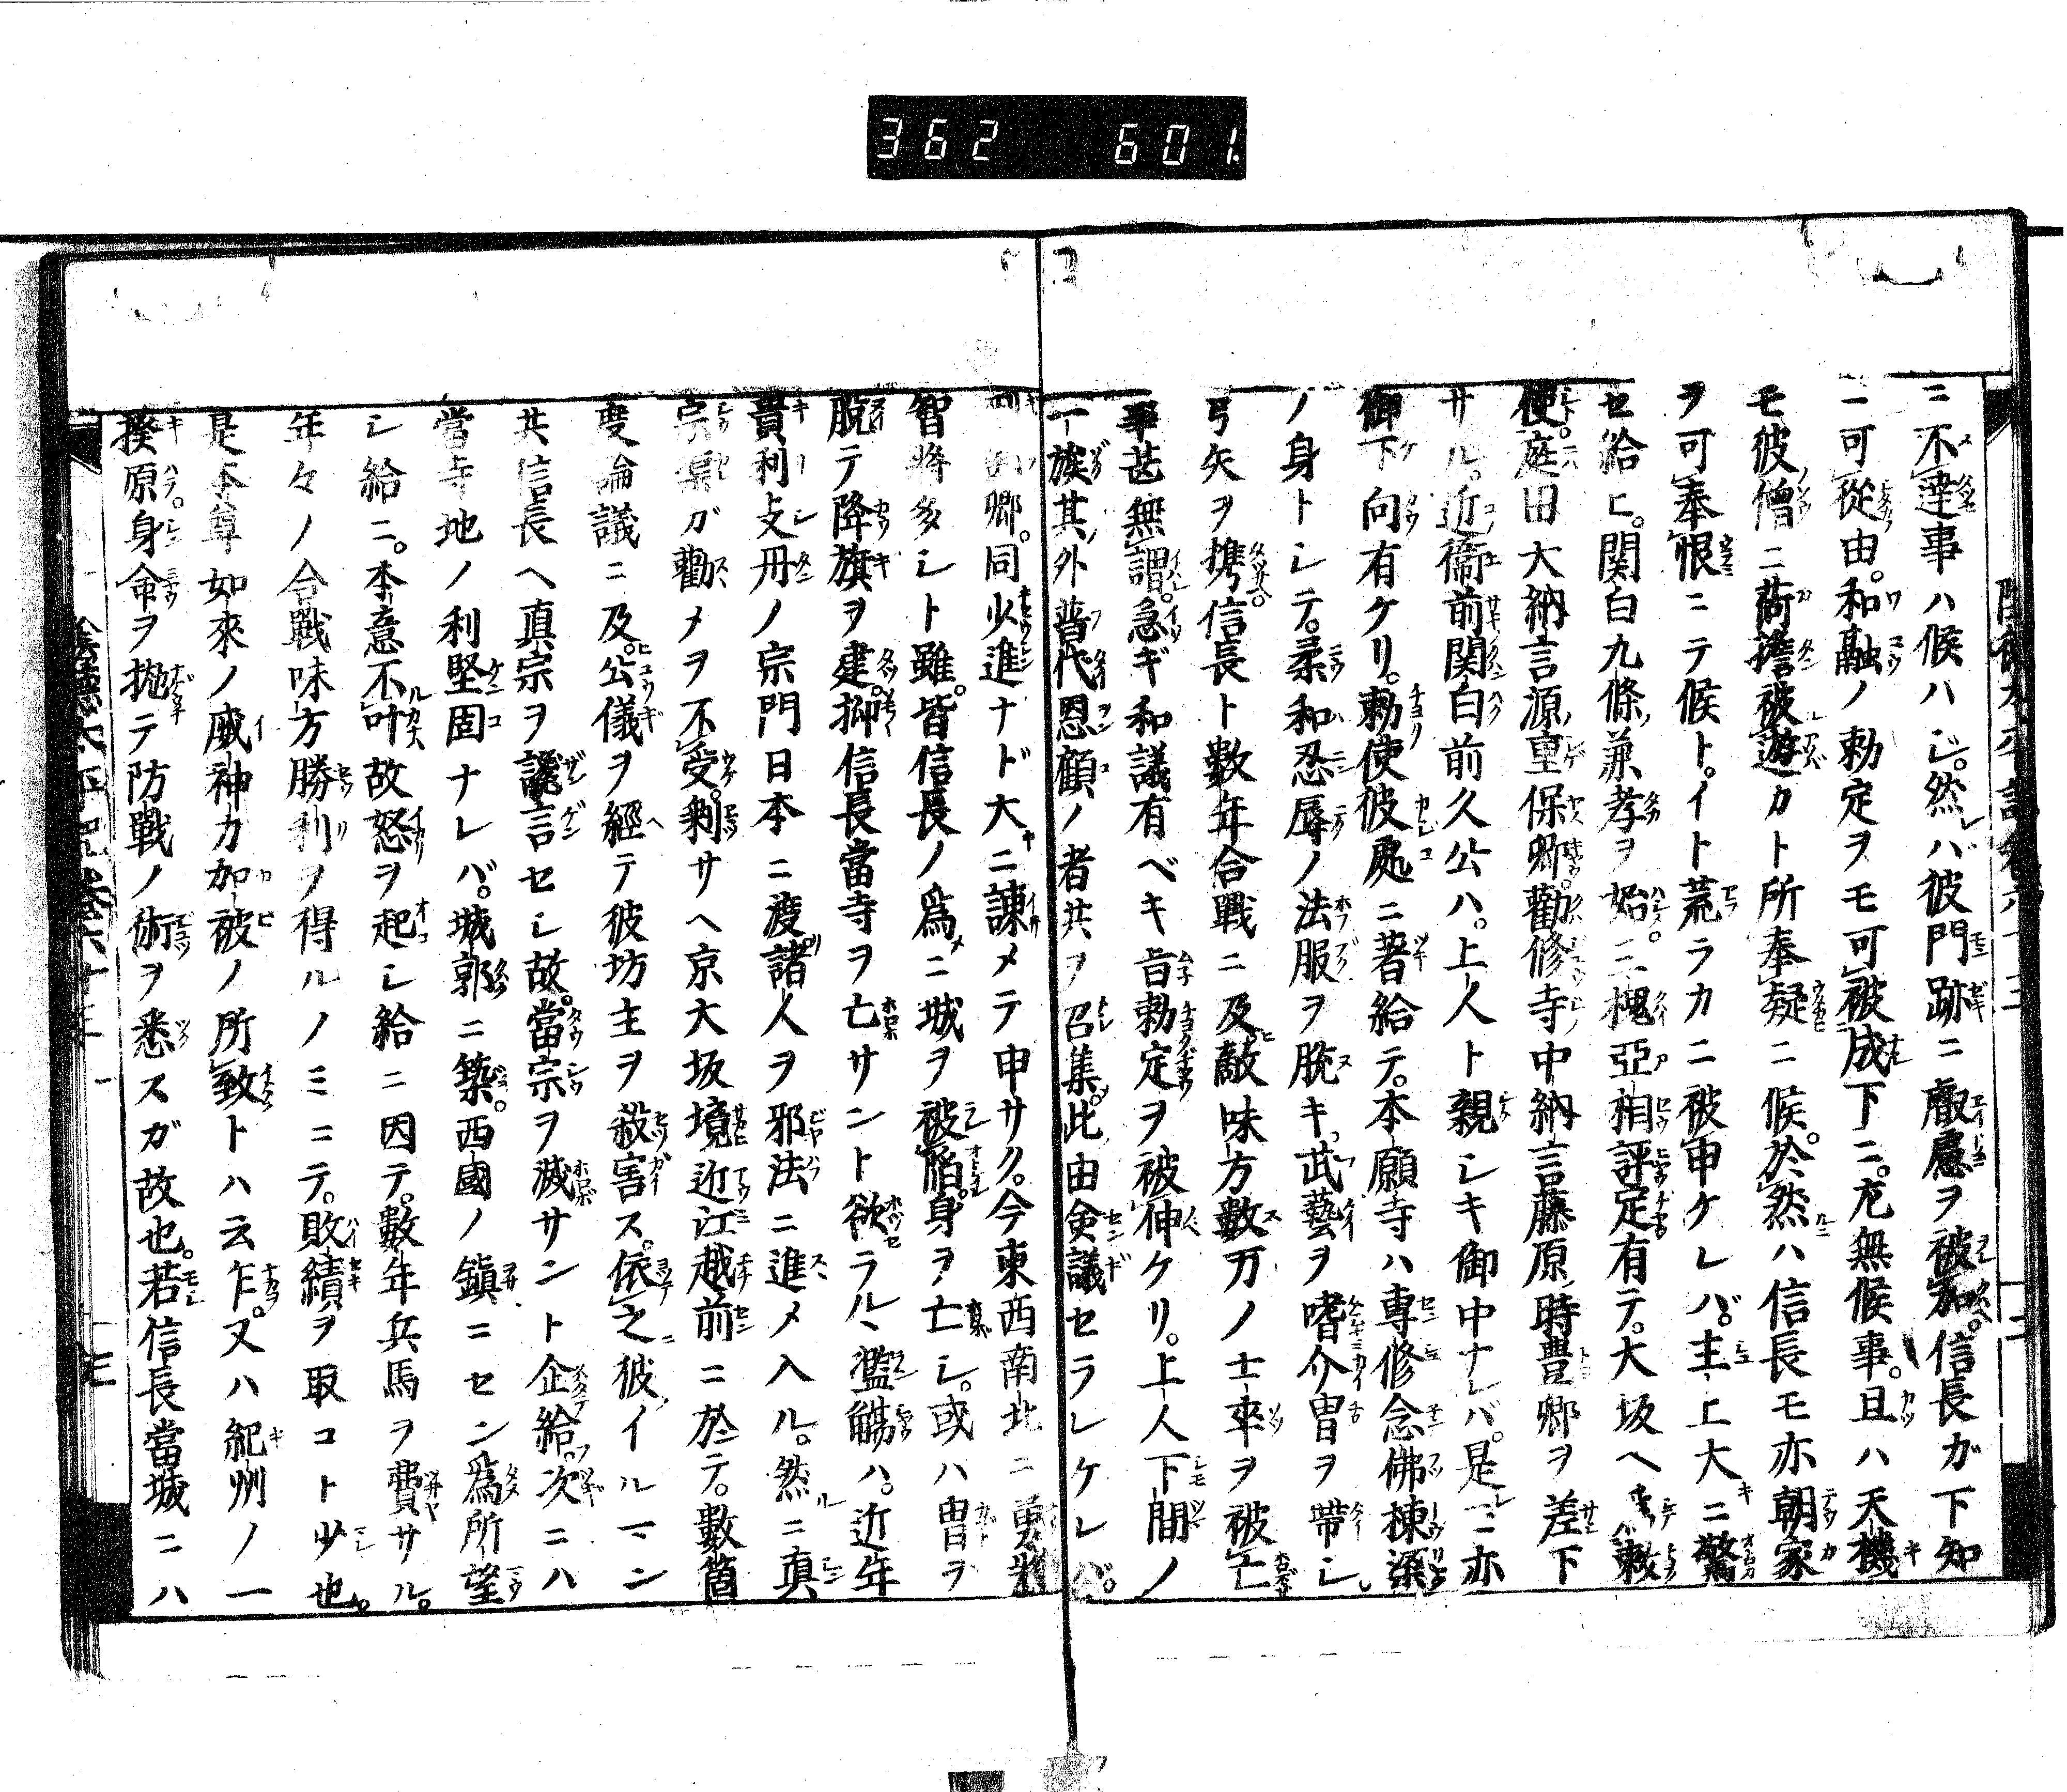 362 601
ニ不違事ハ候ハジ。然レバ彼門跡ニ叡慮ヲ被加。信長ガ下知
ニ可從由。和融ノ勅定ヲモ可被成下ニ。尤無候事。且ハ天機
モ彼僧ニ荷擔被遊カト所奉疑ニ候。於然ハ信長モ亦朝家
ヲ可奉恨ニテ候ト。イト荒ラカニ被申ケレバ。主上大ニ驚
セ給ヒ。関白九條兼孝ヲ始。三槐亞相評定有テ。大坂ヘ勅
使。庭田大納言源重保卿。勸修寺中納言藤原時豊卿ヲ差下
サル。近衞前関白前久公ハ。上人ト親シキ御中ナレバ。是モ亦
御下向有ケリ。勅使彼處ニ著給テ。本願寺ハ專修念佛棟梁
ノ身トシテ。柔和忍辱ノ法服ヲ脱キ。武藝ヲ嗜介冑ヲ帶シ
弓矢ヲ携。信長ト數年合戰ニ及。敵味方數万ノ士卒ヲ被亡
事甚無謂。急ギ和議有ベキ旨勅定ヲ被伸ケリ。上人下間ノ
一族其外普代恩顧ノ者共ヲ召集。此由僉議セラレケレバ。
卿。同少進ナド大ニ諫メテ申サク。今東西南北ニ勇將
智將多シト雖。皆信長ノ爲ニ城ヲ被陷。身ヲ亡シ。或ハ冑ヲ
脱テ降旗ヲ建。抑信長當寺ヲ亡サント欲ラルヽ濫觴ハ。近年
貴利支丹ノ宗門日本ニ渡諸人ヲ邪法ニ進メ入ル。然ニ真
宗渠ガ勸メヲ不受。剩サヘ京大坂境近江越前ニ於テ。數箇
度論議ニ及。公儀ヲ經テ彼坊主ヲ殺害ス。依之彼イルマン
共信長ヘ真宗ヲ讒言セシ故。當宗ヲ滅サント企給フ。次ニハ
當寺地ノ利堅固ナレバ。城郭ニ築。西國ノ鎭ニセン爲所望
シ給ニ。本意不叶故怒ヲ起シ給ニ因テ。數年兵馬ヲ費サル。
年々ノ合戰味方勝利ヲ得ルノミニテ。敗績ヲ取コト少也。
是本尊如來ノ威神力加被ノ所致トハ云乍。又ハ紀州ノ一
揆原身命ヲ抛テ防戰ノ術ヲ悉スガ故也。若信長當城ニハ